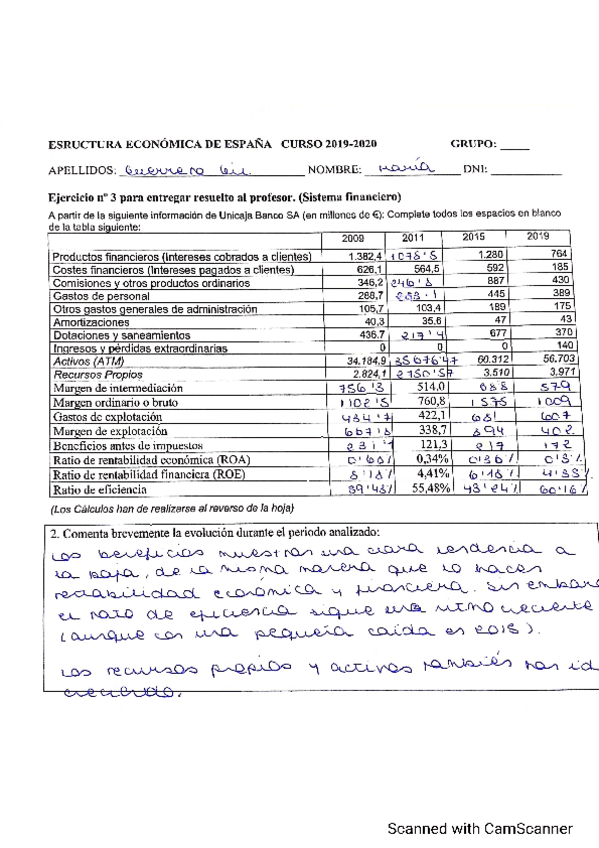 ESRUCTURA ECONÓMICA DE ESPAÑA CURSO 2019-2020 GRUPO: ____
APELLIDOS: Guerrero Gil NOMBRE: María DNI: ____
Ejercicio nº 3 para entregar resuelto al profesor. (Sistema financiero)
A partir de la siguiente información de Unicaja Banco SA (en millones de €): Complete todos los espacios en blanco
de la tabla siguiente:
2009 2011 2015 2019
Productos financieros (Intereses cobrados a clientes) 1.382,4 1078'5 1.280 764
Costes financieros (Intereses pagados a clientes) 626,1 564,5 592 185
Comisiones y otros productos ordinarios 346,2 246'8 887 430
Gastos de personal 288,7 283'1 445 389
Otros gastos generales de administración 105,7 103,4 189 175
Amortizaciones 40,3 35,6 47 43
Dotaciones y saneamientos 436,7 217'4 677 370
Ingresos y pérdidas extraordinarias 0 0 0 140
Activos (ATM) 34.184,9 35676'47 60.312 56.703
Recursos Propios 2.824,1 2750'57 3.510 3.971
Margen de intermediación 756'3 514,0 688 579
Margen ordinario o bruto 1102'5 760,8 1575 1009
Gastos de explotación 434'7 422,1 681 607
Margen de explotación 667'8 338,7 894 402
Beneficios antes de impuestos 231'1 121,3 217 172
Ratio de rentabilidad económica (ROA) 0'68% 0,34% 0'36% 0'3%
Ratio de rentabilidad financiera (ROE) 8'18% 4,41% 6'18% 4'33%
Ratio de eficiencia 39'43% 55,48% 43'24% 60'16%
(Los Cálculos han de realizarse al reverso de la hoja)
2. Comenta brevemente la evolución durante el periodo analizado:
Los beneficios muestran una clara tendencia a
la baja, de la misma manera que lo hacen
rentabilidad económica y financiera. Sin embarg
el ratio de eficiencia sigue una ritmo creciente
(aunque con una pequeña caída en 2015).
Los recursos propios y activos también han id
creciendo.
Scanned with CamScanner